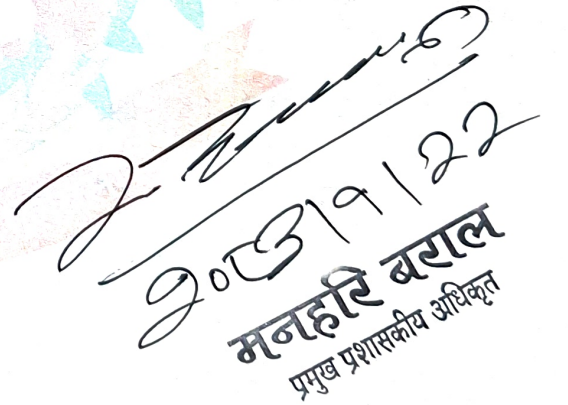 २०८३।१।२२
मनहरि बराल
प्रमुख प्रशासकीय अधिकृत